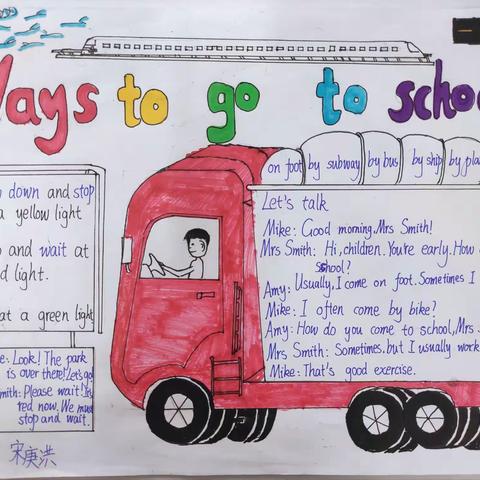 Ways to go to schoo
on foot by subway by bus by ship by pla
down and stop
a yellow light
and wait at
d light.
at a green light
e: Look! The park
is over there! Let's go!
mith: Please wait! It's
red now. We must
stop and wait.
Let's talk
Mike: Good morning, Mrs Smith!
Mrs Smith: Hi, children. You're early. How
school?
Amy: Usually, I come on foot. Sometimes I
Mike: I often come by bike?
Amy: How do you come to school, Mrs S
Mrs Smith: Sometimes. but I usually work
Mike: That's good exercise.
宋庚洪